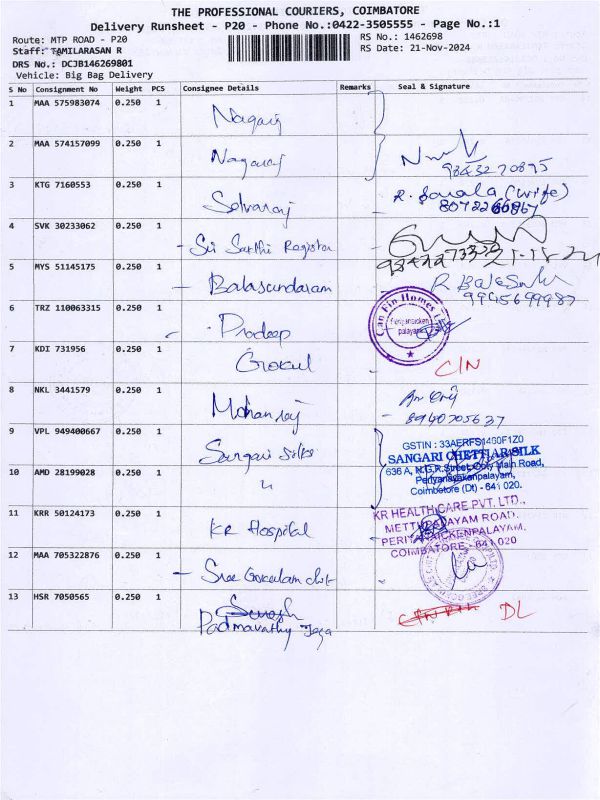 THE PROFESSIONAL COURIERS, COIMBATORE
Delivery Runsheet - P20 - Phone No.:0422-3505555 - Page No.:1
Route: MTP ROAD - P20
RS No.: 1462698
Staff: TAMILARASAN R
RS Date: 21-Nov-2024
DRS No.: DCJB146269801
Vehicle: Big Bag Delivery
S No Consignment No Weight PCS Consignee Details Remarks Seal & Signature
1 MAA 575983074 0.250 1 Nagaraj
2 MAA 574157099 0.250 1 Nagaraj
98432 70875
3 KTG 7160553 0.250 1 Selvaraj R. (wife)
4 SVK 30233062 0.250 1 Sri Sakthi Register
5 MYS 51145175 0.250 1 Balasundaram R
9945699987
6 TRZ 110063315 0.250 1 Pradeep Can Fin Homes
Periyanaicken
palayam
7 KDI 731956 0.250 1 Gokul C/N
8 NKL 3441579 0.250 1 Mohanraj
8940705637
9 VPL 949400667 0.250 1 Sangari Silks
GSTIN : 33AERFS1460F1Z0
SANGARI CHETTIAR SILK
636 A, N.G.R.Street, Main Road,
10 AMD 28199028 0.250 1 "
Periyanaickenpalayam,
Coimbatore (Dt) - 641 020.
11 KRR 50124173 0.250 1 KR Hospital
KR HEALTH CARE PVT. LTD.,
METTUPALAYAM ROAD,
PERIYANAICKENPALAYAM,
COIMBATORE - 641 020
12 MAA 705322876 0.250 1 Sree Gokulam chit
13 HSR 7050565 0.250 1 Suresh DL
Padmavathy Jaga